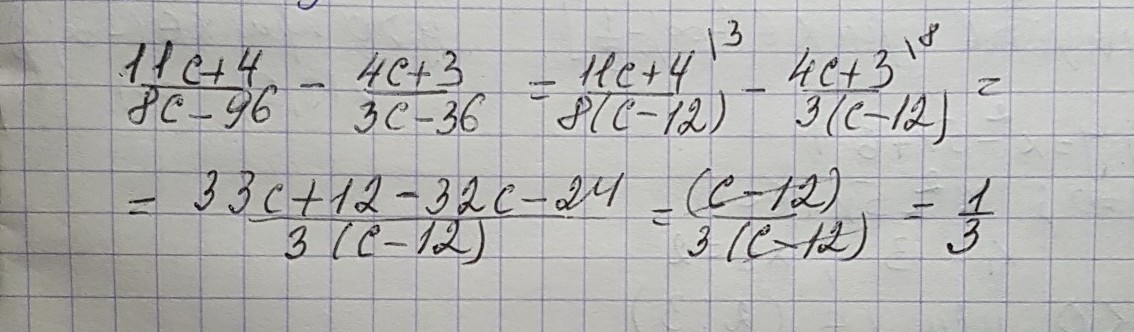 (11c+4)/(8c-96) - (4c+3)/(3c-36) = (11c+4)/(8(c-12)) \3 - (4c+3)/(3(c-12)) \8 =
= (33c+12-32c-24)/(3(c-12)) = (c-12)/(3(c-12)) = 1/3